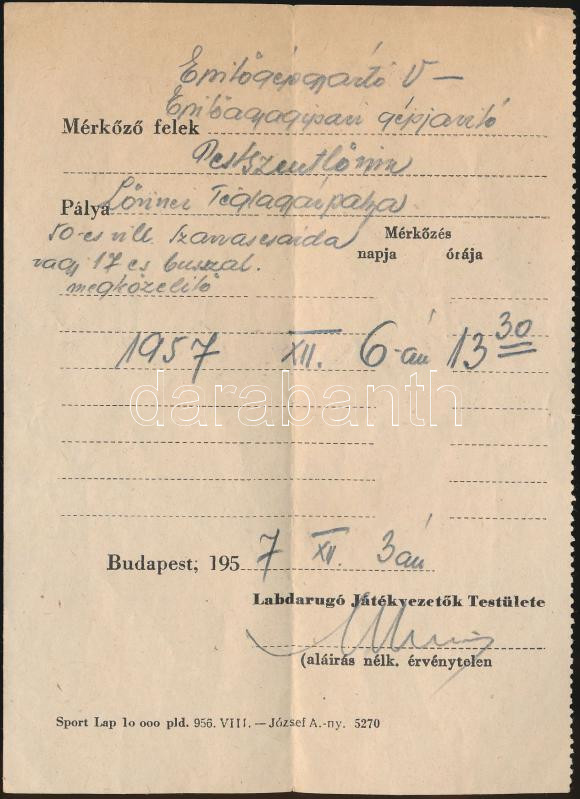 Építőgépgyártó V –
Építőanyagipari gépjavító
Mérkőző felek
Pestszentlőrinc
Pálya Lőrinci Téglagyár pálya
50-es vill. Szarvascsárda
vagy 17 es busszal.
megközelítő
Mérkőzés
napja órája
1957 XII. 6-án 13 30
darabanth
Budapest; 195 7 XII. 3án
Labdarugó Játékvezetők Testülete
(aláirás nélk. érvénytelen
Sport Lap 1o ooo pld. 956. VIII. — József A.-ny. 5270